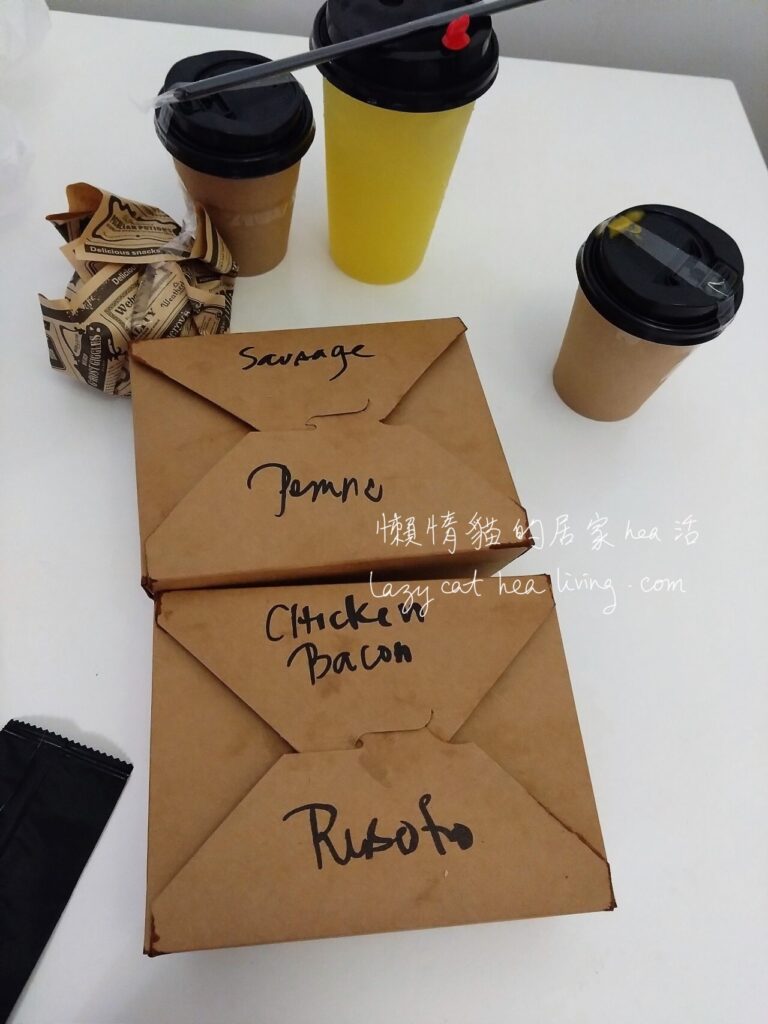 Delicious snacks
Sausage
Penne
懶惰貓的居家hea活
lazy cat hea living.com
Chicken
Bacon
Risotto